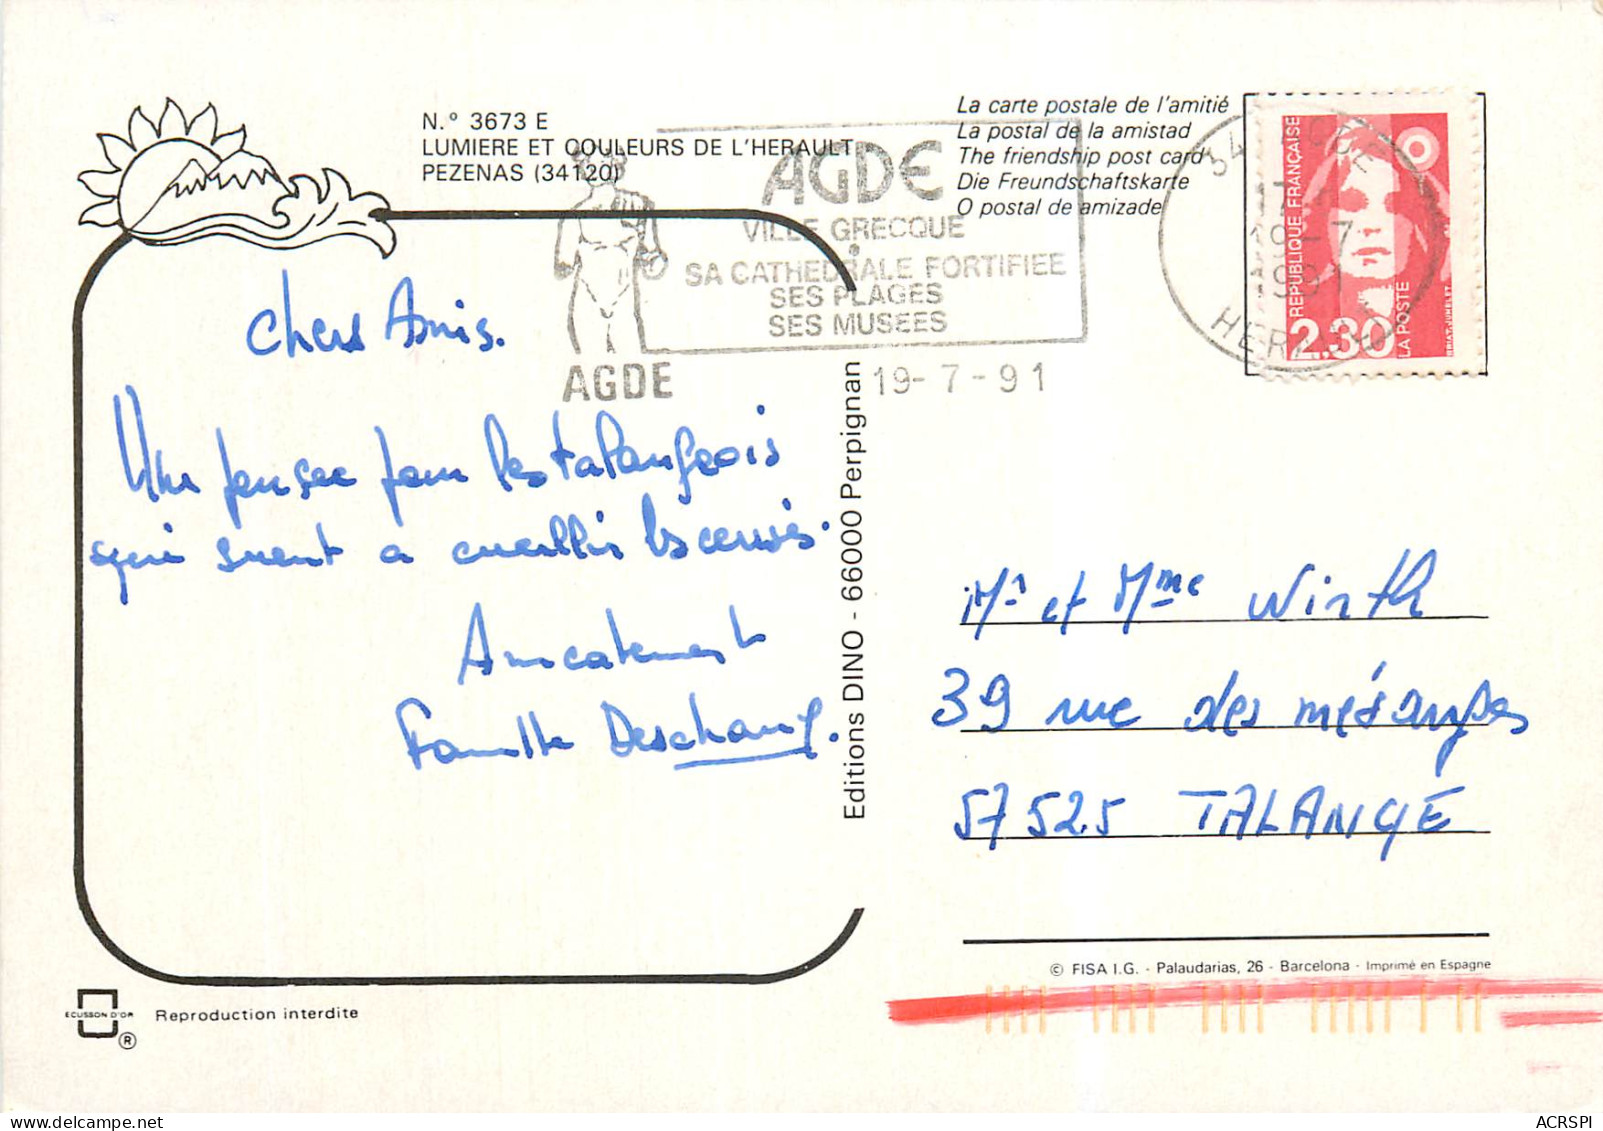 N.° 3673 E
LUMIERE ET COULEURS DE L'HERAULT
PEZENAS (34120)
La carte postale de l'amitié
La postal de la amistad
The friendship post card
Die Freundschaftskarte
O postal de amizade
AGDE
VILLE GRECQUE
SA CATHEDRALE FORTIFIEE
SES PLAGES
SES MUSEES
AGDE
19-7-91
34 AGDE
19-7
1991
HERAULT
REPUBLIQUE FRANÇAISE
2.30
LA POSTE
BRIAT-JUMELET
Chers Amis.
Une pensée pour les talangeois
qui suent a cueillir les cerises.
Amicalement
Famille Deschamps.
Editions DINO - 66000 Perpignan
Mr et Mme Wirth
39 rue des mésanges
57525 TALANGE
© FISA I.G. - Palaudarias, 26 - Barcelona - Imprimé en Espagne
ECUSSON D'OR
®
Reproduction interdite
ACRSPI